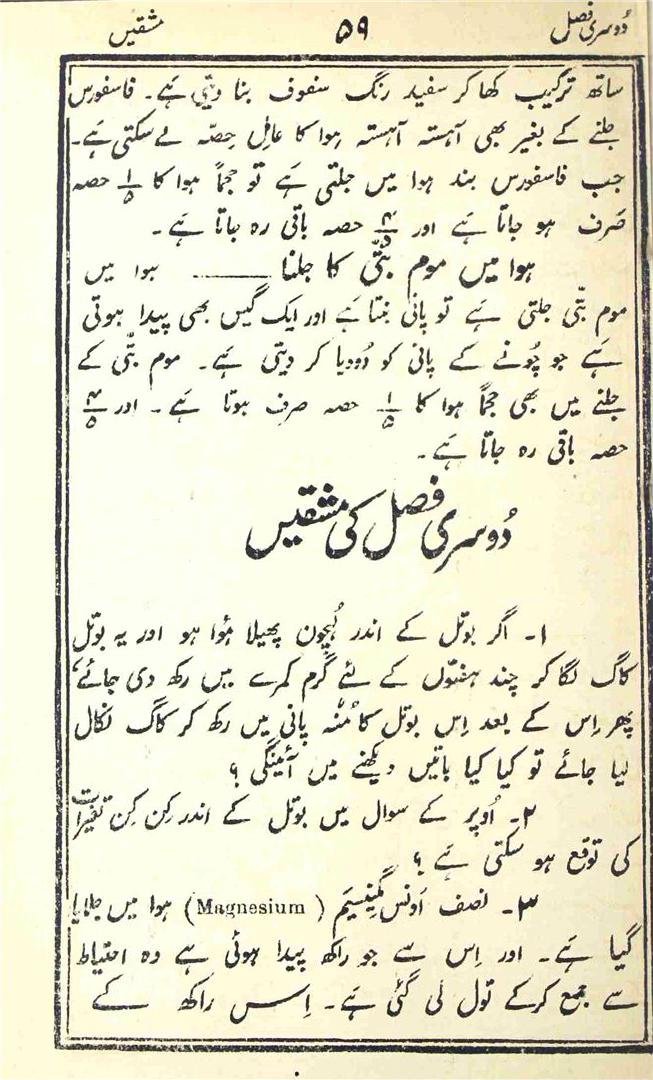 دُوسری فصل ۵۹ مشقیں
ساتھ ترکیب کھا کر سفید رنگ سفوف بنا دیتی ہے۔ فاسفورس
جلنے کے بغیر بھی آہستہ آہستہ ہوا کا عامل حِصّہ لے سکتی ہے۔
جب فاسفورس بند ہوا میں جلتی ہے تو حجماً ہوا کا ۱/۵ حصہ
صَرف ہو جاتا ہے اور ۴/۵ حصہ باقی رہ جاتا ہے۔
ہوا میں موم بتّی کا جلنا ــــــــ ہوا میں
موم بتّی جلتی ہے تو پانی بنتا ہے اور ایک گیس بھی پیدا ہوتی
ہے جو چُونے کے پانی کو دُودیا کر دیتی ہے۔ موم بتّی کے
جلنے میں بھی حجماً ہوا کا ۱/۵ حصہ صرف ہوتا ہے۔ اور ۴/۵
حصہ باقی رہ جاتا ہے۔
دُوسری فصل کی مشقیں
۱۔ اگر بوتل کے اندر لُہچون پھیلا ہُوا ہو اور یہ بوتل
کاگ لگا کر چند ہفتوں کے لئے گرم کمرے میں رکھ دی جائے،
پھر اِس کے بعد اِس بوتل کا مُنّہ پانی میں رکھ کر کاگ نکال
لیا جائے تو کیا کیا باتیں دیکھنے میں آئینگی ؟
۲۔ اُوپر کے سوال میں بوتل کے اندر کِن کِن تغیّرات
کی توقع ہو سکتی ہے ؟
۳۔ نصف اَونس مگنیسیَم (Magnesium) ہوا میں جلایا
گیا ہے۔ اور اِس سے جو راکھ پیدا ہوئی ہے وہ احتیاط
سے جمع کرکے تول لی گئی ہے۔ اِس راکھ کے